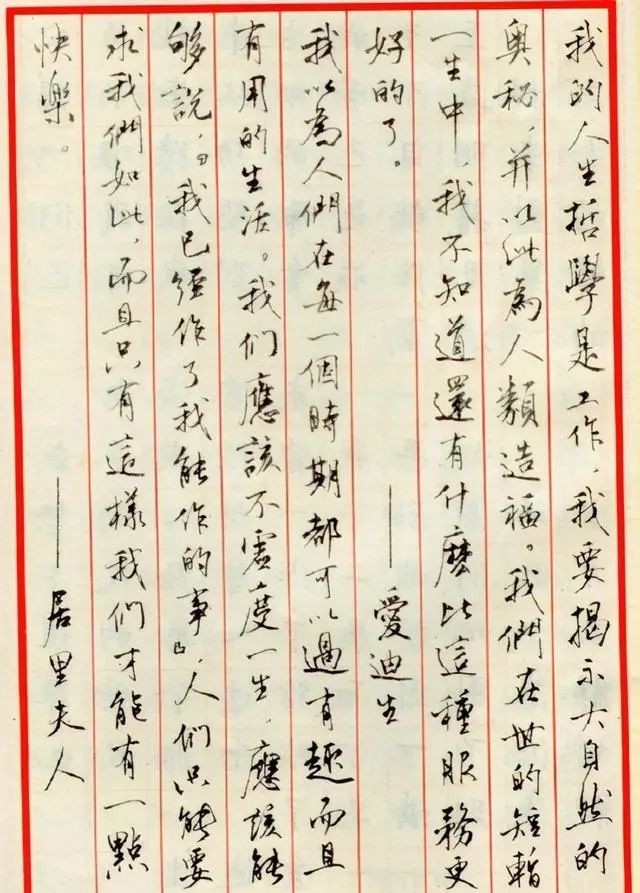 我的人生哲學是工作，我要揭示大自然的
奥秘，并以此為人類造福。我們在世的短暫
一生中，我不知道還有什麽比這種服務更
好的了。——愛迪生
我以為人們在每一個時期都可以過有趣而且
有用的生活。我们應該不虚度一生，應該能
够説，“我已經作了我能作的事”，人们只能要
求我們如此，而且只有這樣我们才能有一點
快樂。——居里夫人